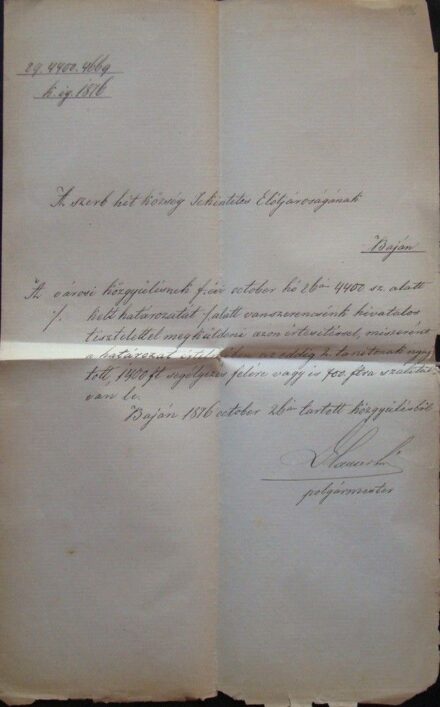 29. 4400. 4669
k. ig. 1876
A szerb hit község Tekintetes Elöljáróságának
Baján
A városi közgyülésnek f. évi october hó 26án 4400 sz. alatt
kelt határozatát ·/· alatt van szerencsénk hivatalos
tisztelettel megküldeni azon értesitéssel, miszerint
a határozat az eddig tanitóknak nyuj
tott, 1400 ft segélyezés felére vagy is 700 ftra szállitva
van le.
Baján 1876 october 26án tartott közgyülésből
polgármester